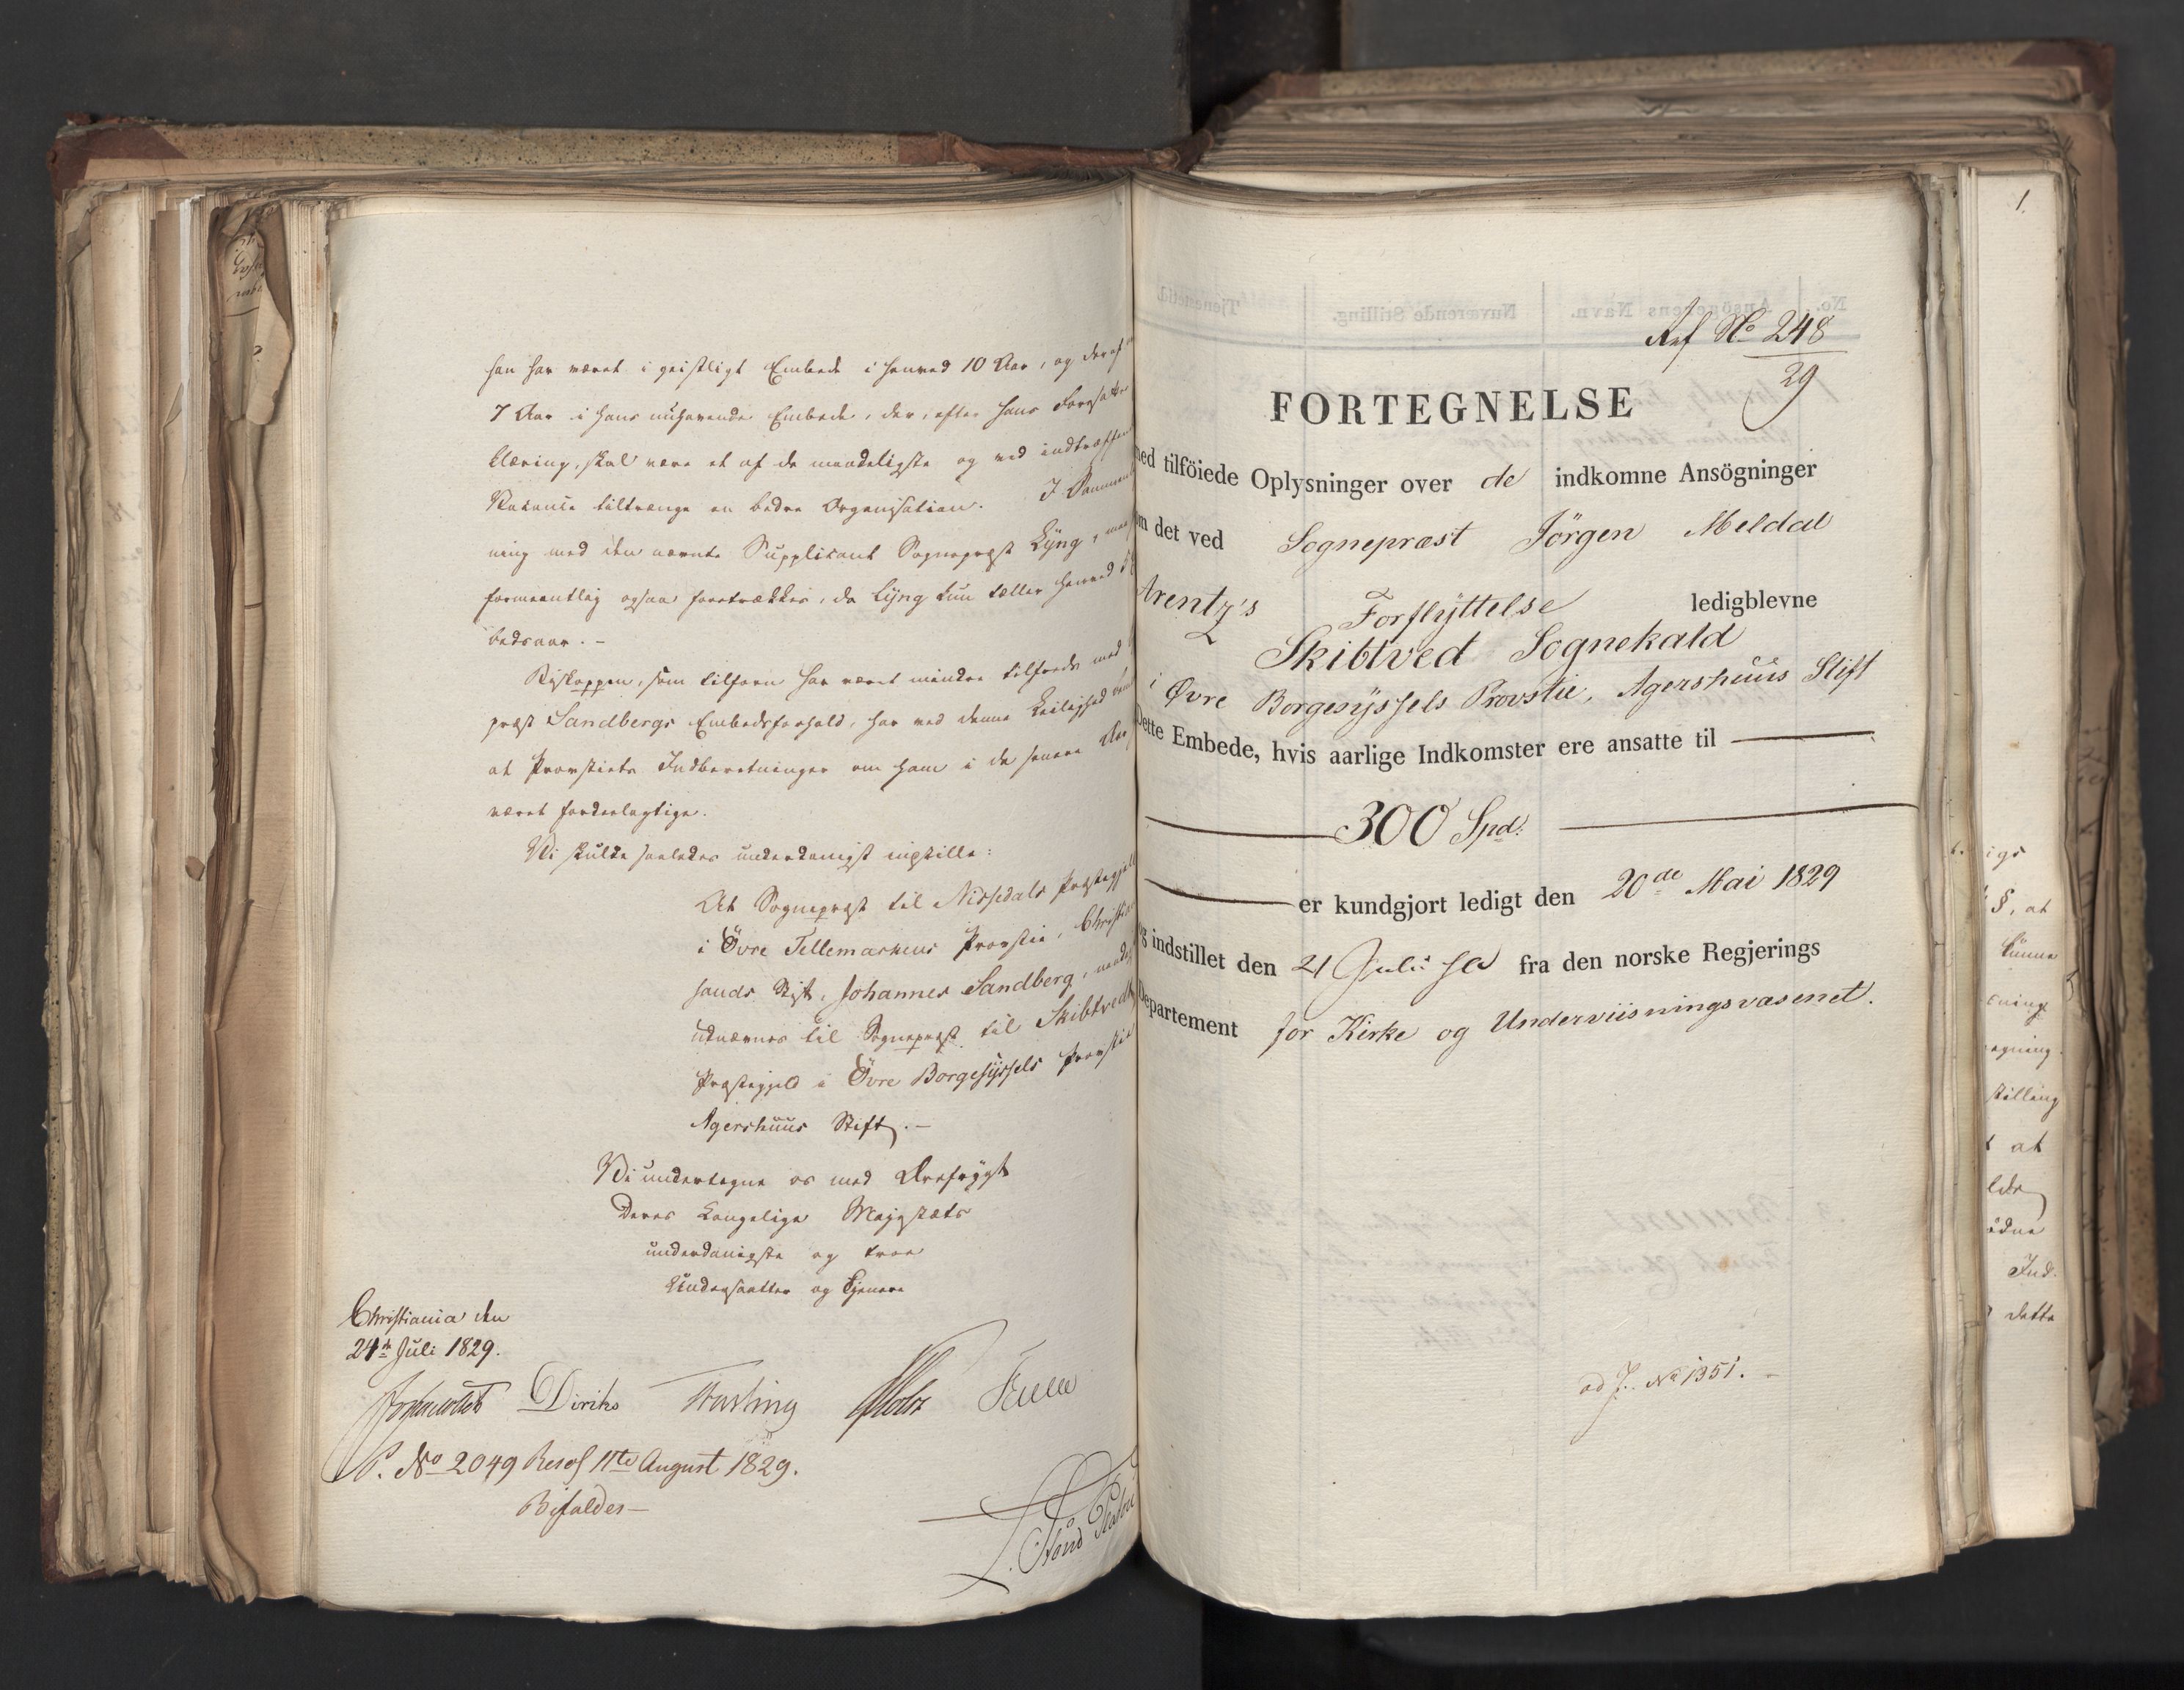 han har været i geistligt Embede i henved 10 Aar, og deraf
7 Aar i hans nuhavende Embede, der, efter hans Foresatte
klæring, skal være et af de maadeligste og ved indtræffen
Vacance tiltrænge en bedre Organisation. I Sammen
ning med den nævnte Supplicant Sognepræst Lyng, maa
formeentlig ogsaa foretrækkes, da Lyng kun tæller henved 5
bedsaar. -
Biskoppen, som tilforn har været mindre tilfreds med
præst Sandbergs Embedsforhold, har ved denne Leilighed
at Provstiets Indberetninger om ham i de senere Aar
været fordeelagtige.
Vi skulde saaledes underdanigst indstille:
At Sognepræst til Nissedals Præstegjeld
i Övre Tellemarkens Provstie, Christian
sands Stift, Johannes Sandberg, naadigst
udnævnes til Sognepræst til Skibtvedt
Præstegjeld i Övre Borgesyssels Provstie
Agershuus Stift. -
Vi undertegne os med Ærefrygt
Deres Kongelige Majestæts
underdanigste og troe
Undersaatter og Tjenere
Christiania den
24de Juli 1829.
Diriks Fasting Holst
P. No 2049 Resol 11te August 1829.
Bifaldes -
Ref No 248
29
FORTEGNELSE
med tilföiede Oplysninger over de indkomne Ansögninger
om det ved Sognepræst Jörgen Meldal
Arentz's Forflyttelse ledigblevne
Skibtved Sognekald
i Øvre Borgesyssels Provstie, Agershuus Stift
Dette Embede, hvis aarlige Indkomster ere ansatte til
300 Spd.
er kundgjort ledigt den 20de Mai 1829
og indstillet den 21 Juli s. A. fra den norske Regjerings
Departement for Kirke og Underviisningsvæsenet.
ad J. No 1351. -
1.
igs
§, at
kunne
ening
egning.
stilling
at
Ind.
dette